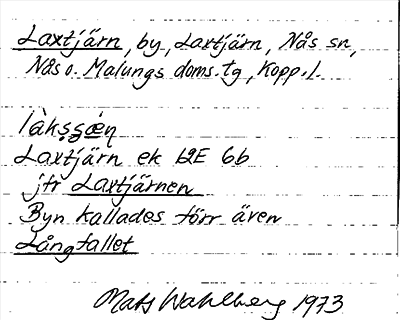 Laxtjärn, by, Laxtjärn, Nås sn,
Nås o. Malungs doms. tg, Kopp. l.
Laxtjärn ek 12E 6b
jfr Laxtjärnen
Byn kallades förr även
Långfallet
Mats Wahlberg 1973